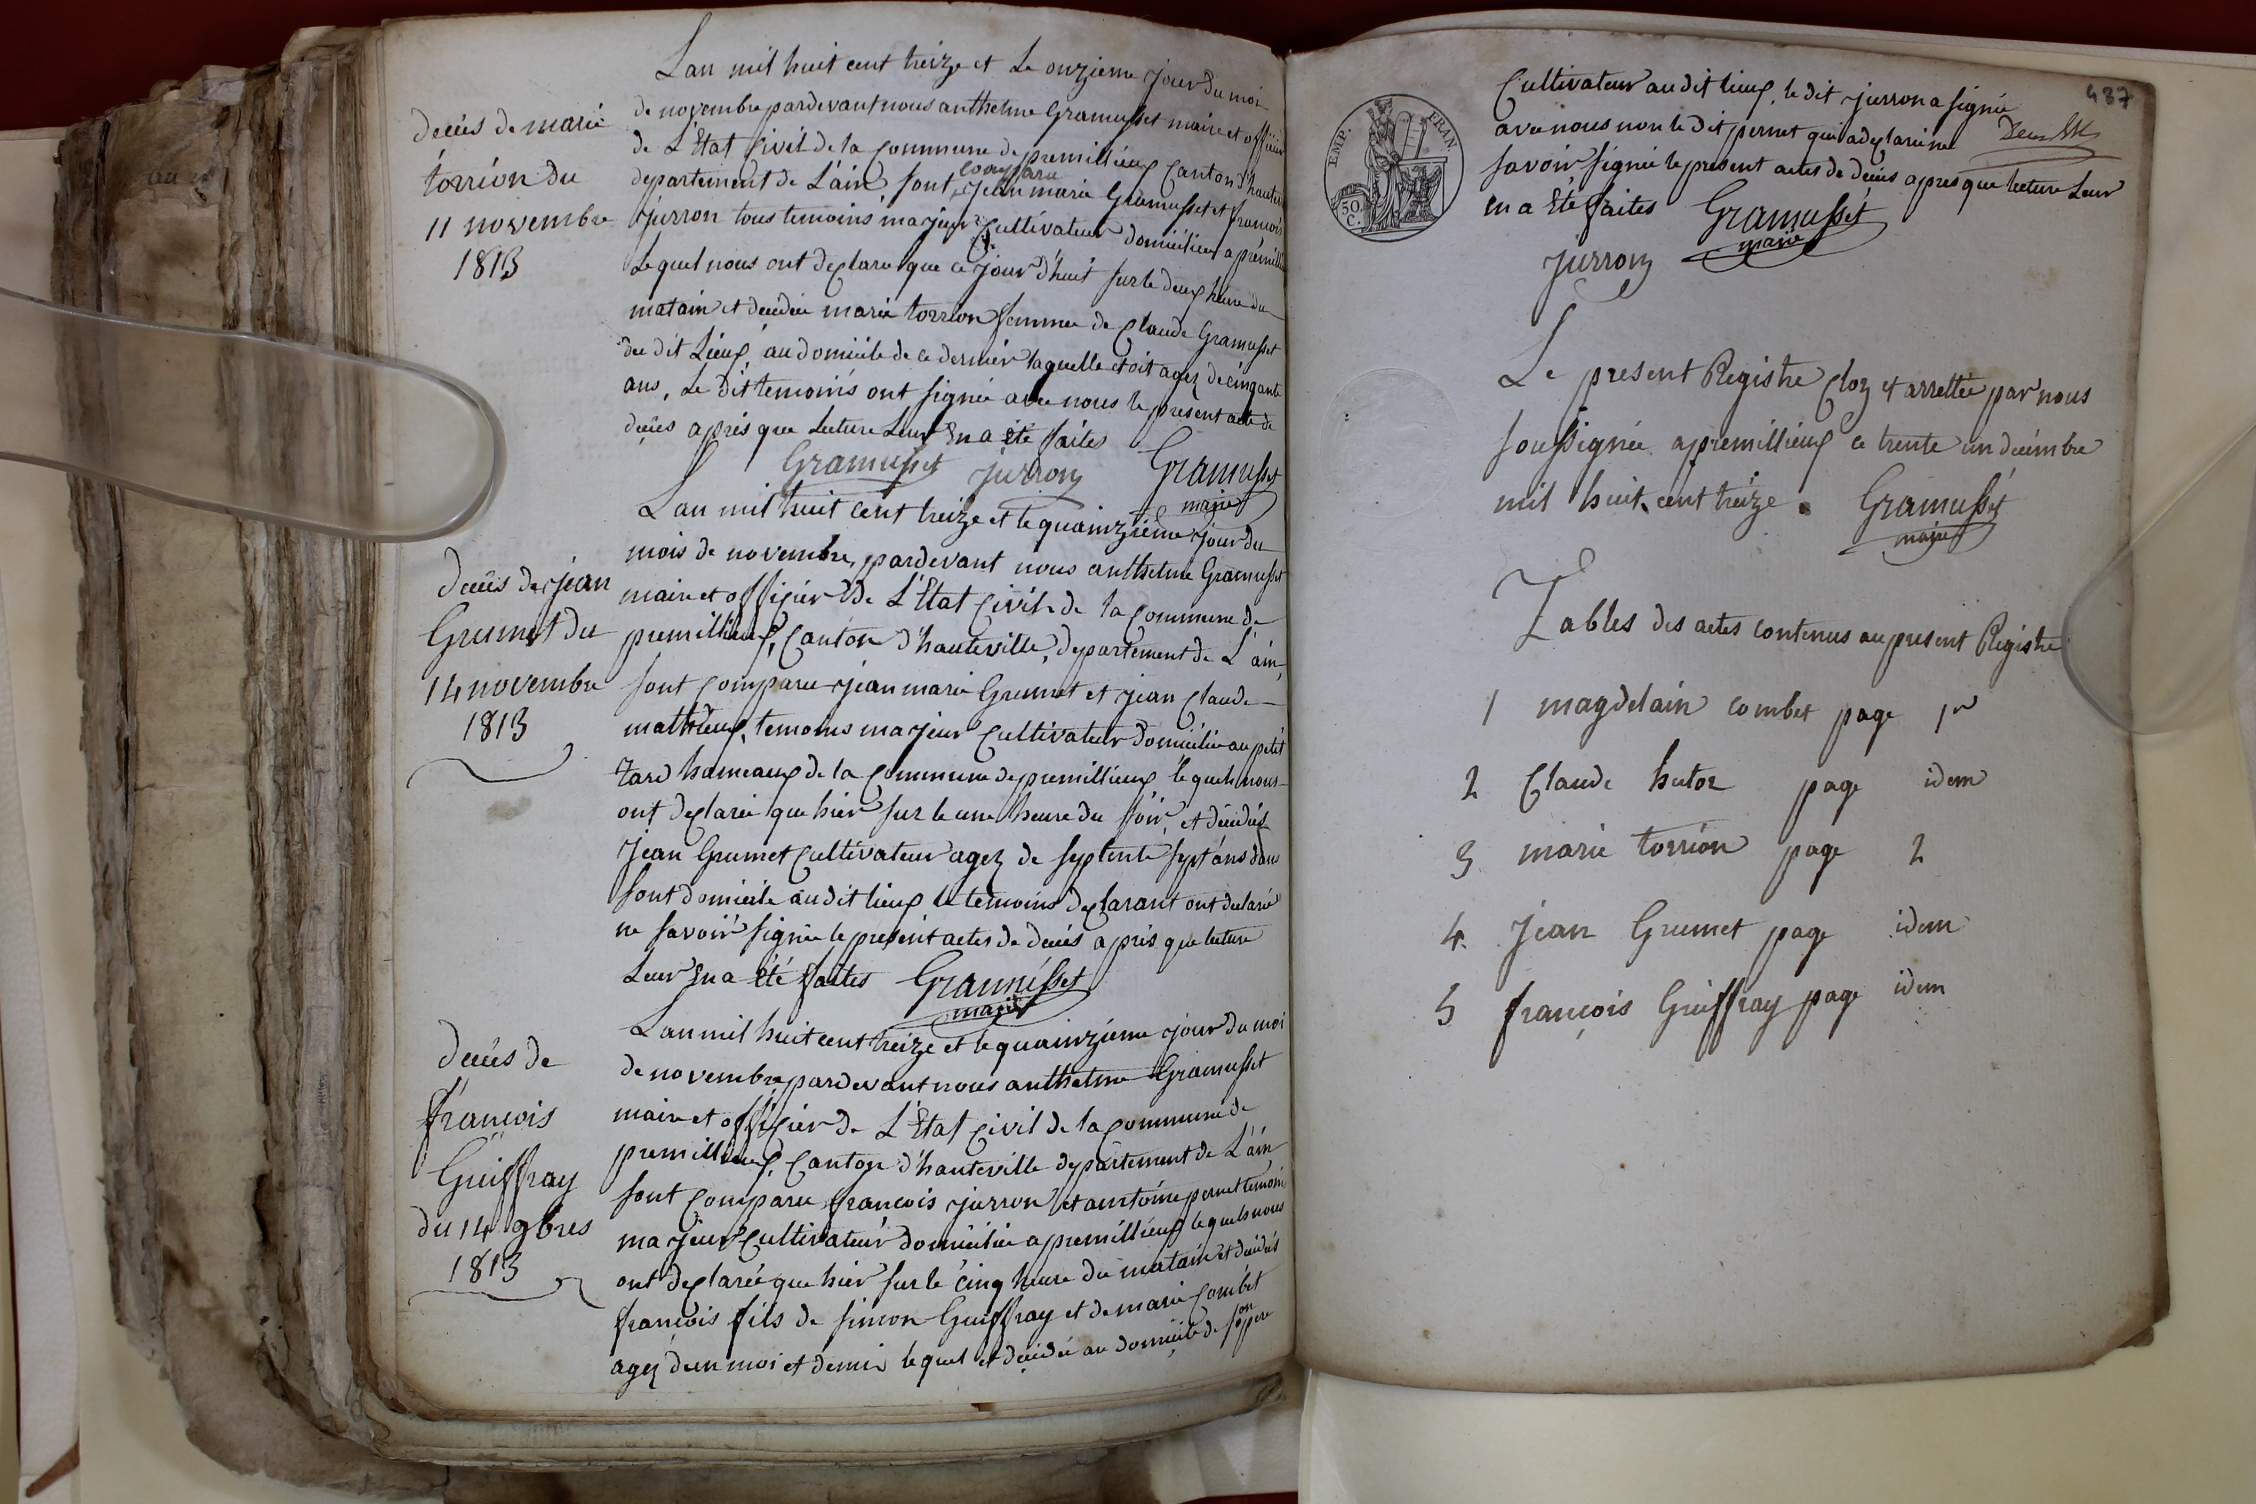 Lan mil huit cent treize et Le onzieme jour du moi
de novembre pardevant nous anthelme Gramusset maire et officier
de L'État Civil de la Commune de premillieux Canton d'hauteville
comparu
departement de L'ain sont jean marie Gramusset et francois
jurron tous temoins majeur Cultivateur domicilier a premillieux
Lequel nous ont declaré que ce jour d'huit sur le deux heure du
matain et decedée marie torrion femme de Claude Gramusset
du dit Lieux, au domicile de ce dernier laquelle etoit agez de cinquante
ans, Le dit temoins ont signée avec nous le present acte de
decès après que lecture Leur En a été faites
Gramusset jurron Gramusset
maire
decès de marie
torrion du
11 novembre
1813
Lan mil huit cent treize et le quainzième jour du
mois de novembre, pardevant nous anthelme Gramusset
maire et officier de L'État Civil de la Commune de
premillieux, Canton d'hauteville, departement de L'ain,
sont comparu jean marie Grumet et jean Claude
mathieux, temoins majeur Cultivateur domicilie au petit
tard hameaux de la Commune de premillieux lequels nous
ont declarée que hier sur le une heure du soir, et décédés
jean Grumet Cultivateur agez de septente sept ans dans
sont domicile au dit lieux le temoins declarant ont declaré
ne savoir signée le present actes de decès après que lecture
Leur En a été faites Gramusset
maire
decès de jean
Grumet du
14 novembre
1813
Lan mil huit cent treize et le quainzieme jour du moi
de novembre pardevant nous anthelme Gramusset
maire et officier de L'État Civil de la Commune de
premillieux, Canton d'hauteville departement de L'ain
sont comparu francois jurron et antoine pernet temoin
majeur Cultivateur domicilie a premillieux lequels nous
ont declarée que hier sur le cinq heure du matain et décédés
francois fils de simon Guiffray et de marie Combet
agez d'un moi et demi lequel et decidée au domicile de son pere
decès de
francois
Guiffray
du 14 9bres
1813
437
EMP. FRAN.
50 C.
Cultivateur au dit lieux, le dit jurron a signée
avec nous non le dit pernet qui a declarée ne
savoir signée le present actes de decès apres que lecture Leur
en a Eté faites Gramusset
maire
jurron
Le present Registre Cloz et arrettée par nous
soussignée a premillieux ce trente un decembre
mil huit cent treize. Gramusset
maire
Tables des actes contenus au present Registre
1 magdelain combet page 1er
2 Claude hutor page idem
3 marie torrion page 2
4 jean Grumet page idem
5 françois Guiffray page idem